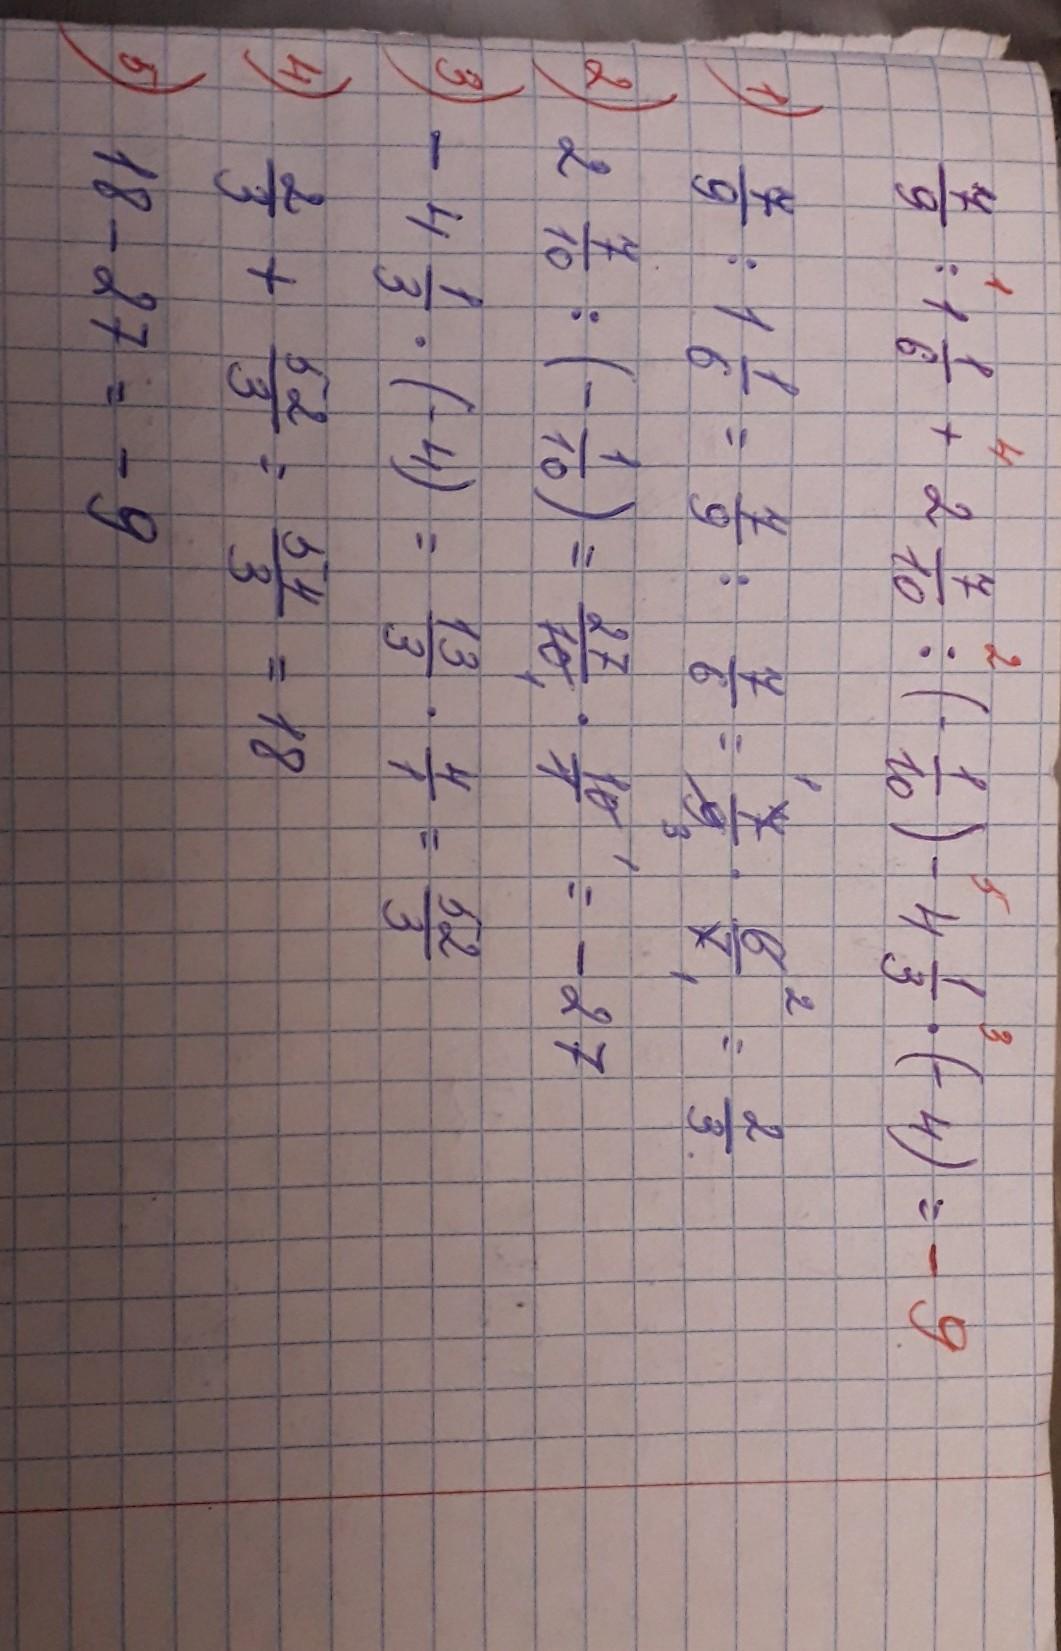 7/9 : 1 1/6 + 2 7/10 : (- 1/10) - 4 1/3 · (-4) = - 9
1) 7/9 : 1 1/6 = 7/9 : 7/6 = 7/9 · 6/7 = 2/3
2) 2 7/10 : (- 1/10) = 27/10 · 10/1 = - 27
3) - 4 1/3 · (-4) = 13/3 · 4/1 = 52/3
4) 2/3 + 52/3 = 54/3 = 18
5) 18 - 27 = - 9